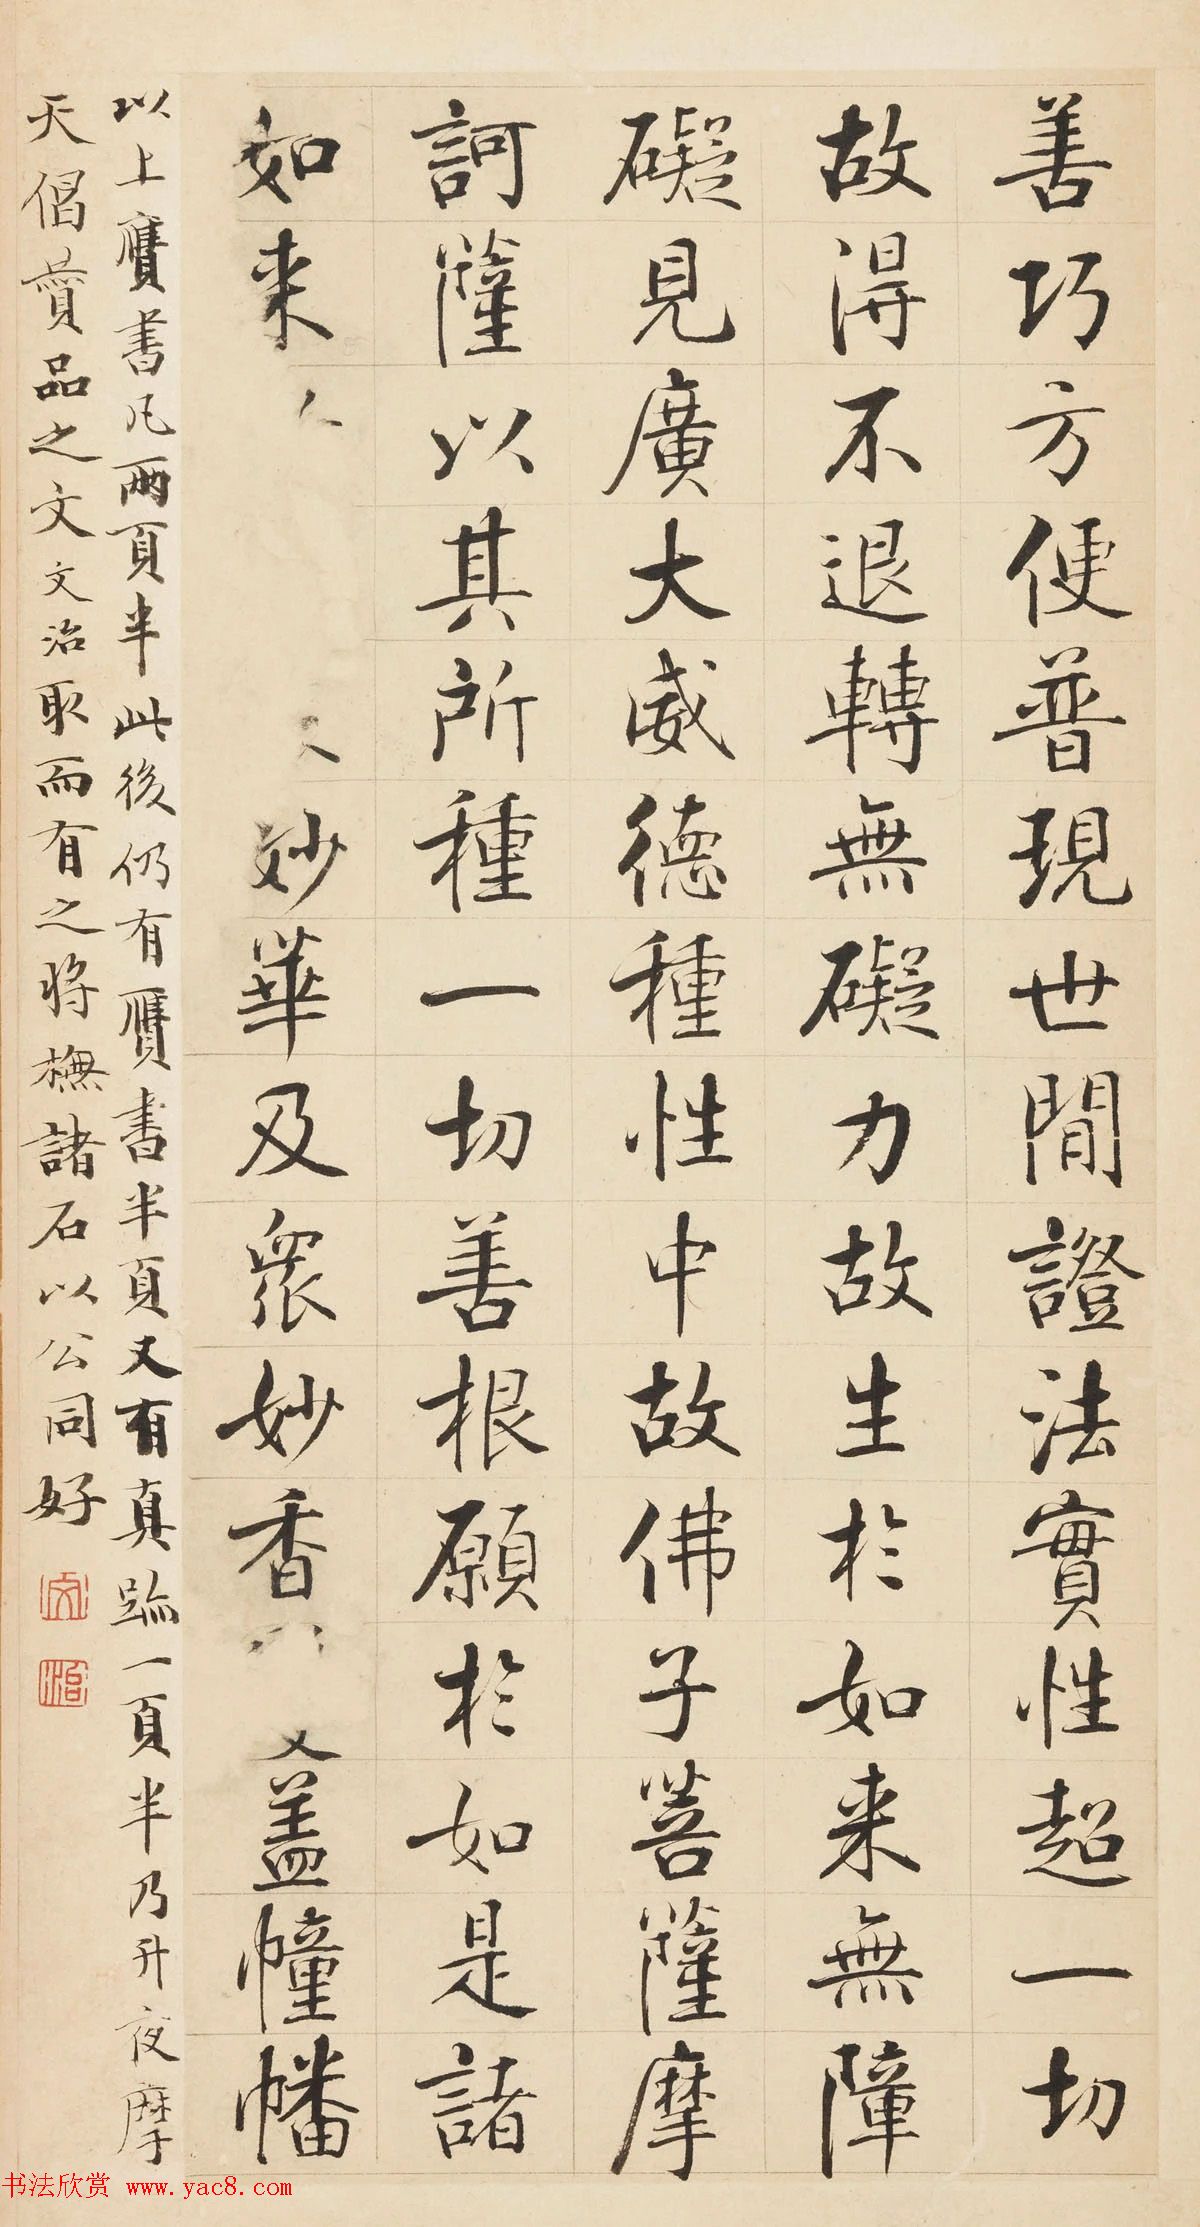 善巧方便普現世間證法實性超一切
故得不退轉無礙力故生於如来無障
礙見廣大威德種性中故佛子菩薩摩
訶薩以其所種一切善根願於如是諸
如来妙華及衆妙香蓋幢幡
以上贗書凡兩頁半此後仍有贗書半頁又有真跡一頁半乃升夜摩
天偈贊品之文文治取而有之將橅諸石以公同好
文治
书法欣赏 www.yac8.com